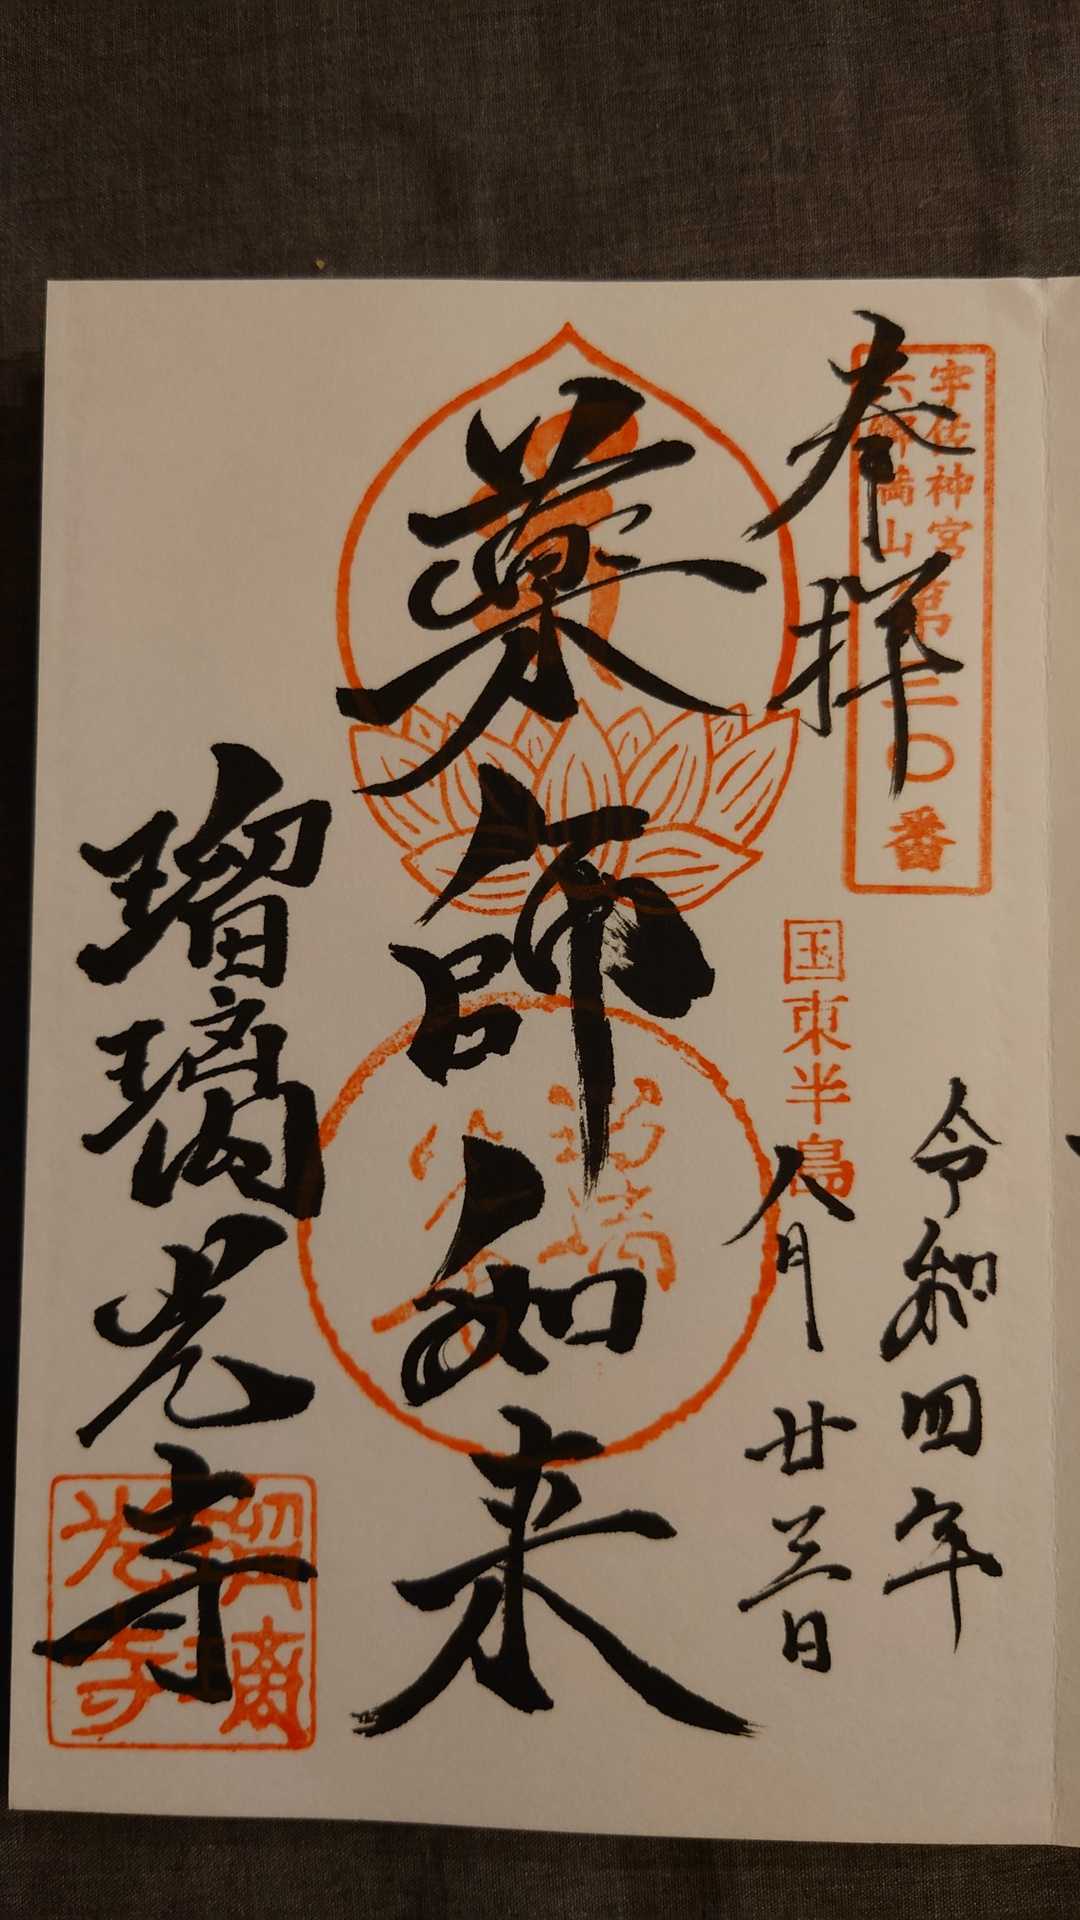 宇佐神宮
六郷満山
第三〇番
奉拝
国東半島
令和四年
八月廿三日
薬師如来
瑠璃光寺
瑠璃
光寺